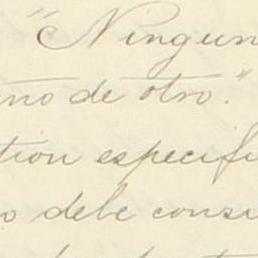 "Ningun
no de otro."
tion especifi
o debe consi